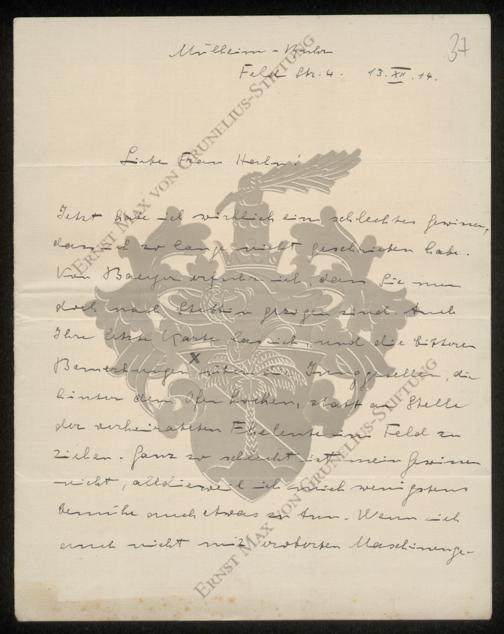 37
Mülheim-Ruhr
Feld Str. 4. 13.XII.14.
Liebe Frau
Jetzt habe ich wirklich ein schlechtes Gewissen,
dass ich so lange nicht geschrieben habe.
Von Baeyer erfuhr ich, dass Sie nun
doch nach Stettin gezogen sind. Auch
Ihre letzte Karte las ich, und die bitteren
Bemerkungen über Junggesellen, die
hinter dem Ofen hocken, statt an Stelle
der verheirateten Eheleute ins Feld zu
ziehen. Ganz so schlecht ist mein Gewissen
nicht, alldieweil ich mich wenigstens
bemühe auch etwas zu tun. Wenn ich
auch nicht mit Maschinenge-
ERNST MAX VON GRUNELIUS-STIFTUNG
ERNST MAX VON GRUNELIUS-STIFTUNG